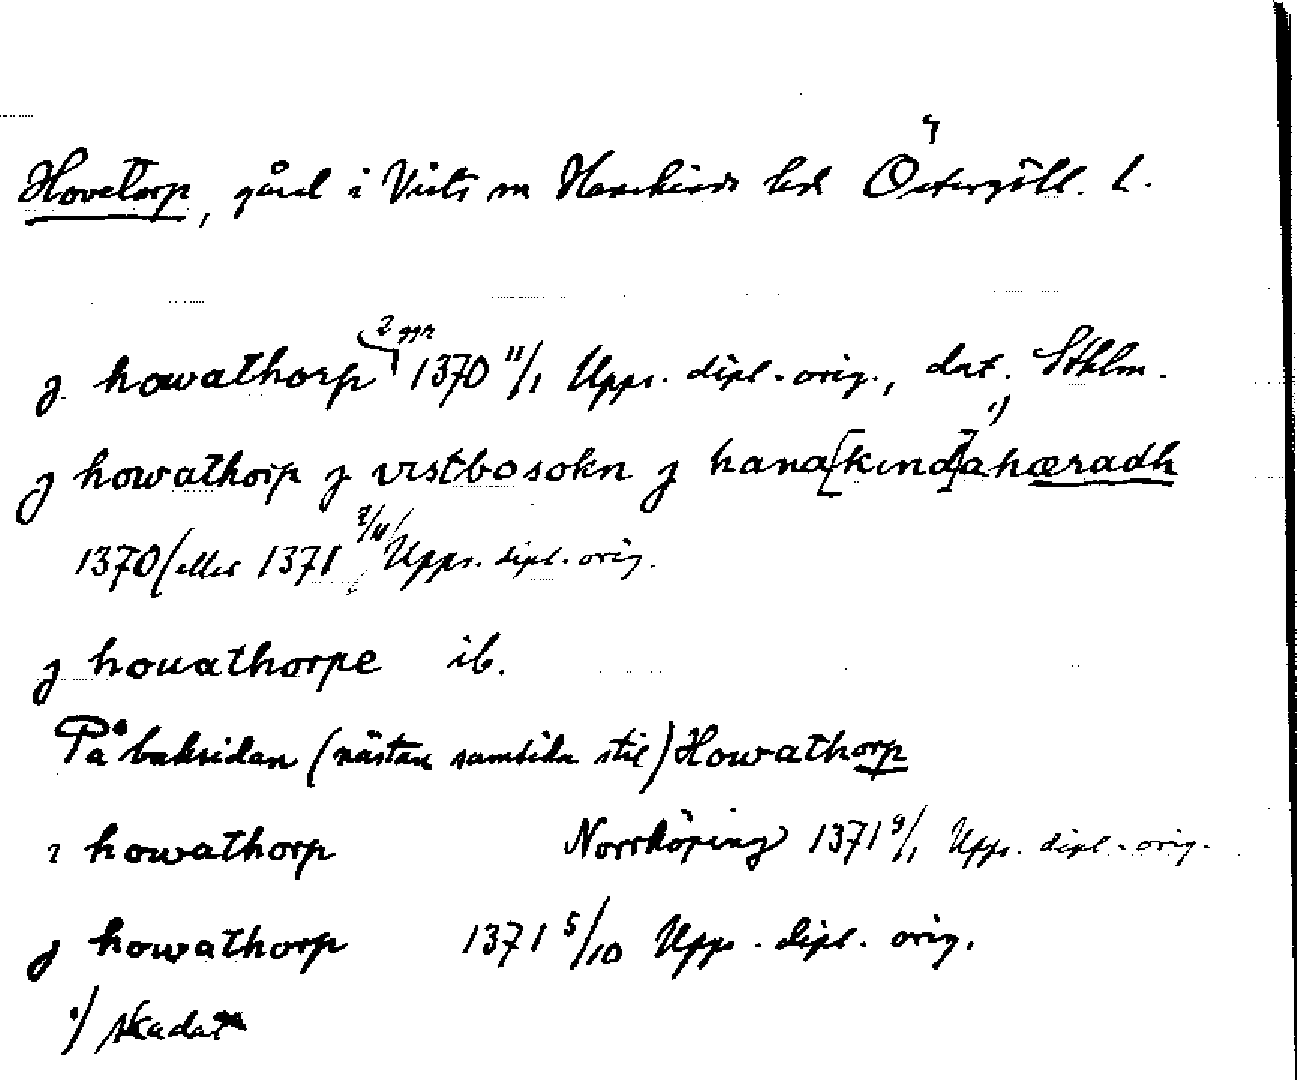 4
Hovetorp, gård i Vists sn Hanekinds hd Östergötl. l.
2 ggr
j howathorp 1370 11/1 Upps. dipl. orig., dat. Sthlm.
j howathorp j vistbosokn j hana[kind]ahæradh 1)
1370 (eller 1371 2/11 Upps. dipl. orig.
j houathorpe ib.
På baksidan (nästan samtida stil) Howathorp
i howathorp Norrköping 1371 9/1 Upps. dipl. orig.
j howathorp 1371 5/10 Upps. dipl. orig.
1) skadat